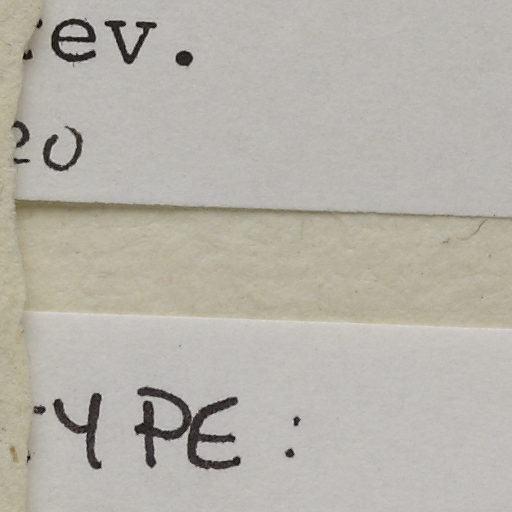 ev.
20
TYPE: